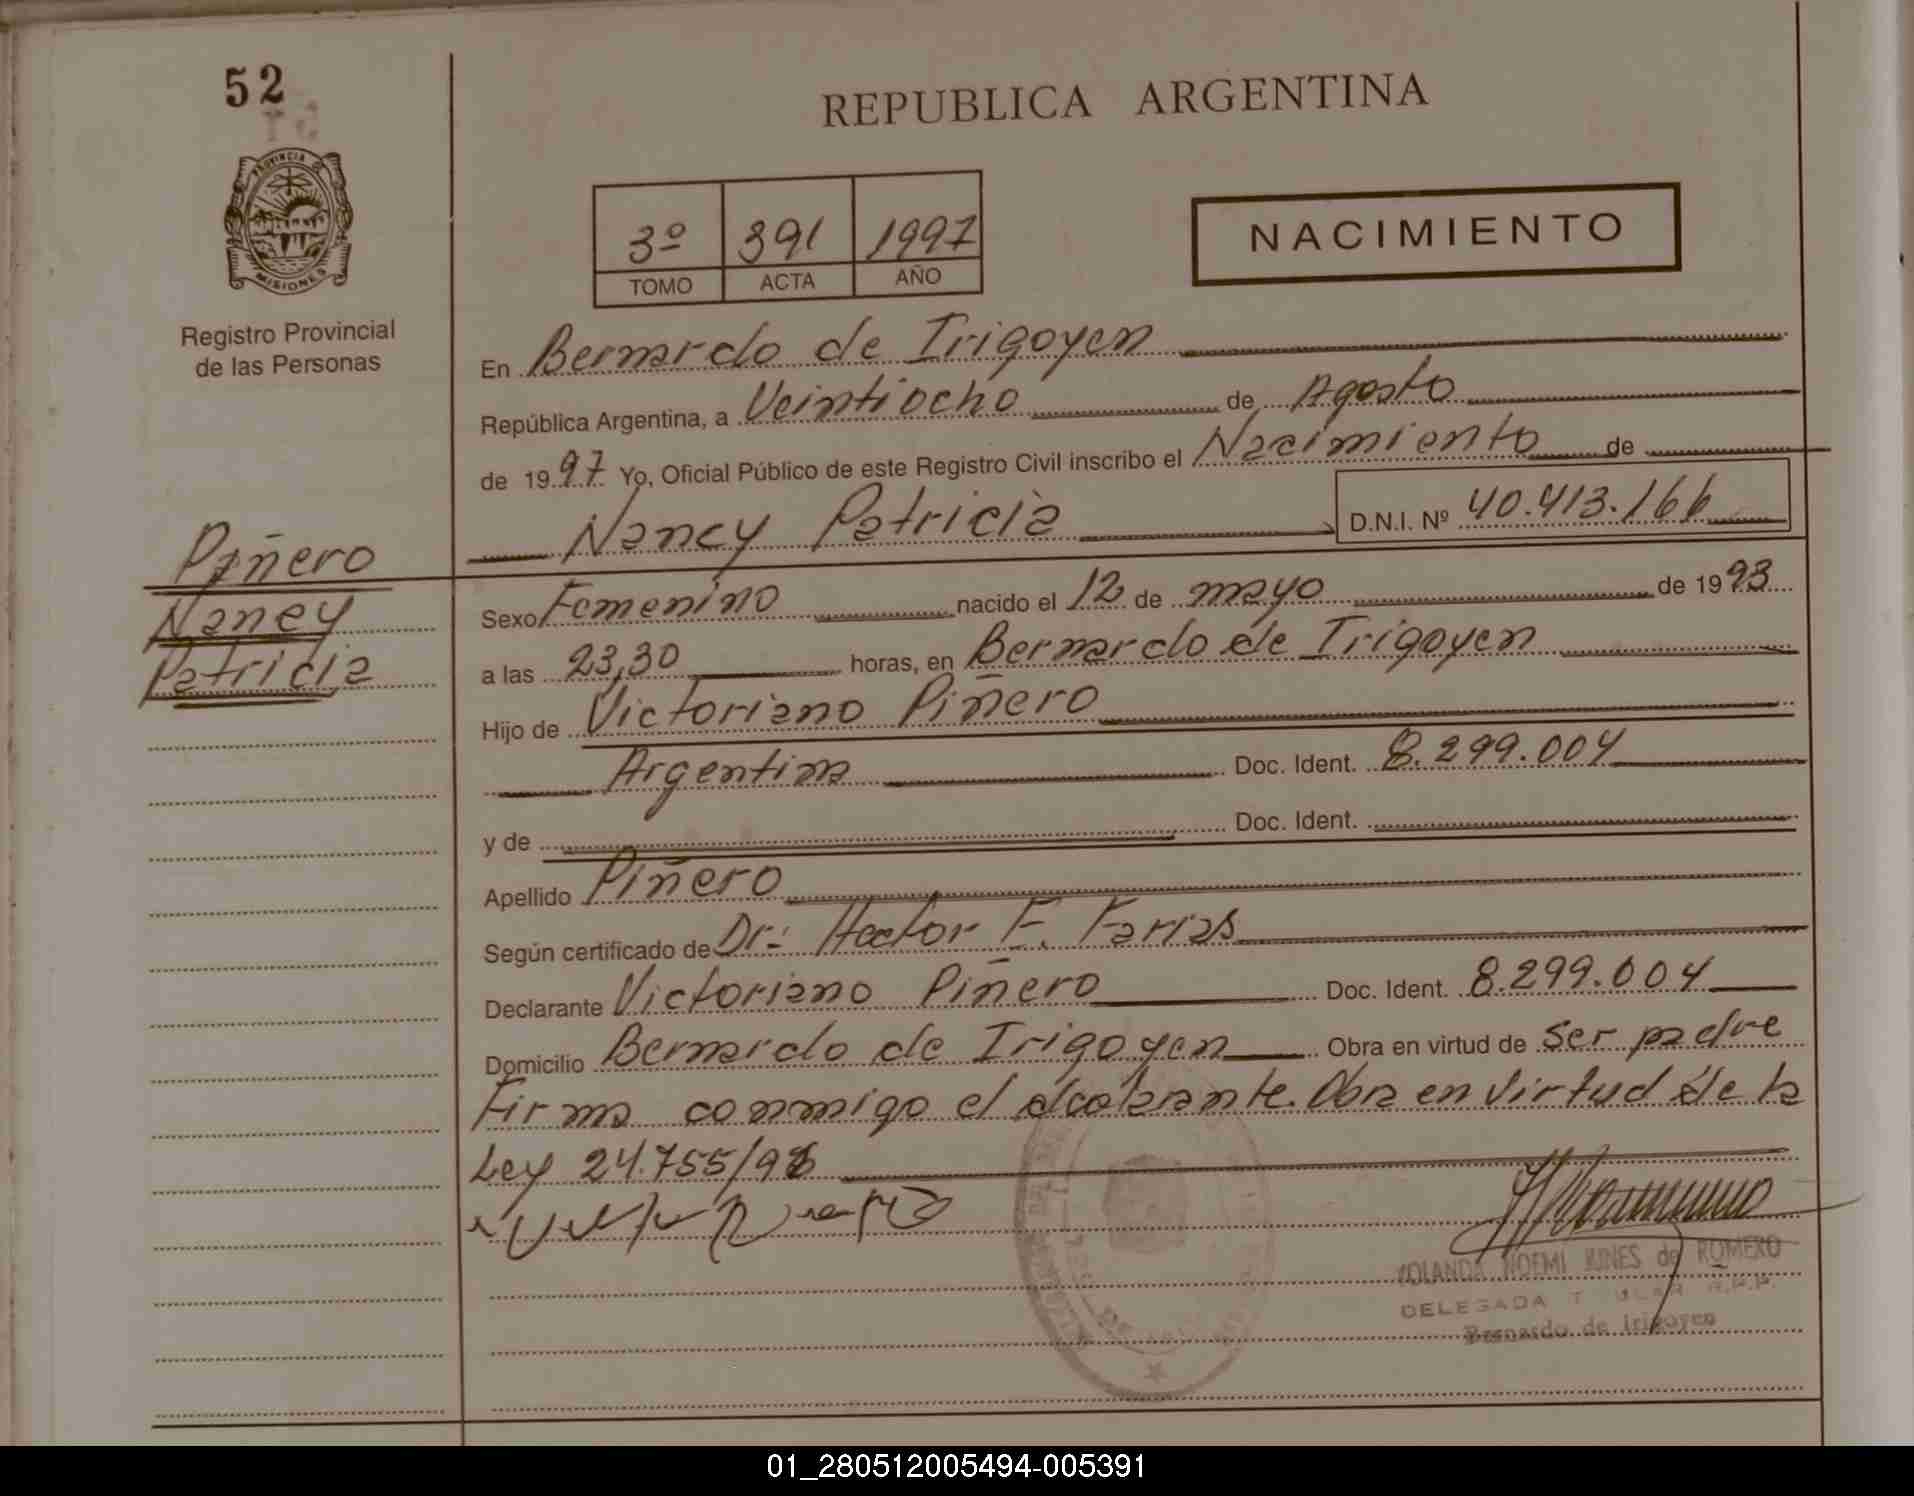 52
PROVINCIA DE
MISIONES
Registro Provincial
de las Personas
REPUBLICA ARGENTINA
3º 391 1997
TOMO ACTA AÑO
NACIMIENTO
En Bernardo de Irigoyen
República Argentina, a Veintiocho de Agosto
de 1997 Yo, Oficial Público de este Registro Civil inscribo el Nacimiento de
Nancy Patricia D.N.I. Nº 40.413.166
Piñero
Nancy
Patricia
Sexo Femenino nacido el 12 de mayo de 1993
a las 23,30 horas, en Bernardo de Irigoyen
Hijo de Victoriano Piñero
Argentina Doc. Ident. 8.299.004
y de Doc. Ident.
Apellido Piñero
Según certificado de Dr: Hector F. Farias
Declarante Victoriano Piñero Doc. Ident. 8.299.004
Domicilio Bernardo de Irigoyen Obra en virtud de ser padre
Firma conmigo el declarante. Obra en Virtud de la
Ley 24.755/96
YOLANDA NOEMI KUNES de ROMERO
DELEGADA TITULAR R.P.P.
Bernardo de Irigoyen
01_280512005494-005391